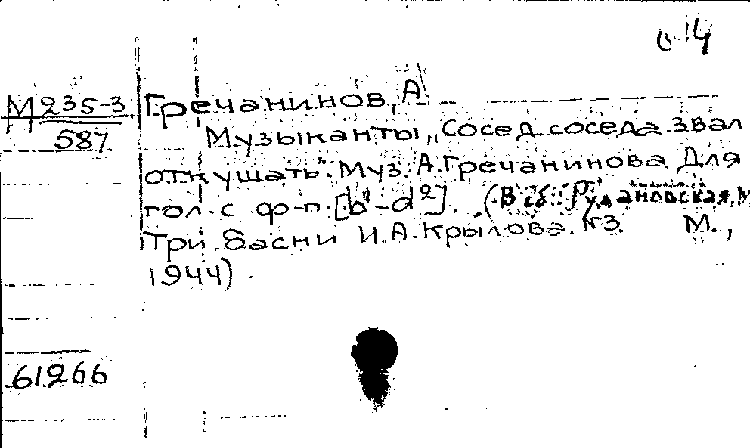 с 14
М 235-3
587
Гречанинов, А
Музыканты „Сосед соседа звал
откушать". Муз. А. Гречанинова Для
гол. с ф-п. [b¹-d²]. (В сб.: Рудановская, М
Три басни И.А. Крылова. М.,
1944).
61266